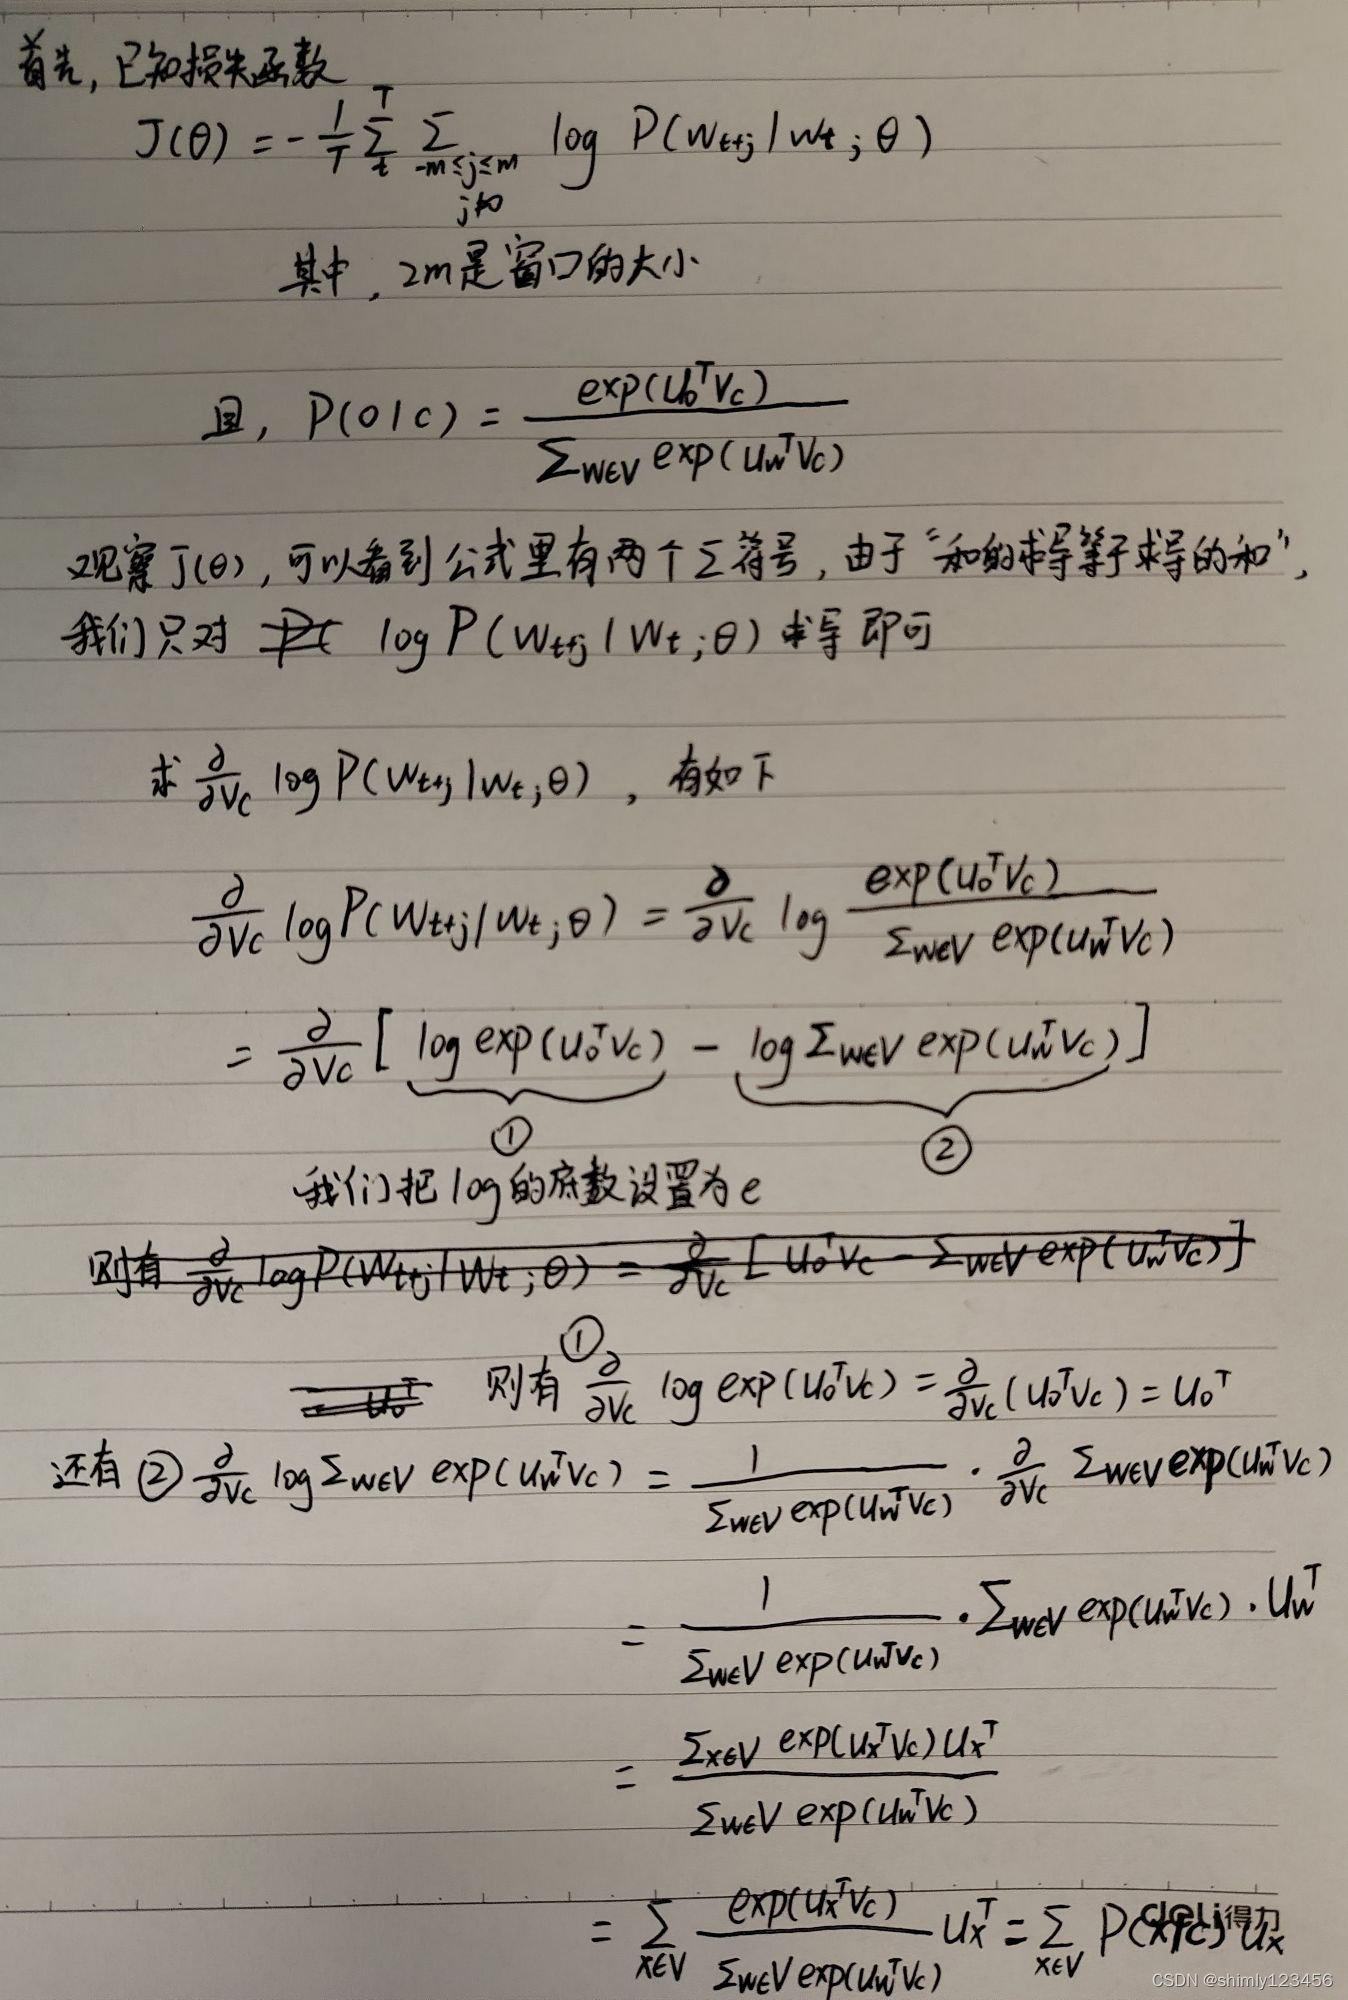 首先,已知损失函数
J(θ) = -1/T Σ_t^T Σ_{-m≤j≤m, j≠0} log P(w_{t+j} | w_t ; θ)
其中,2m是窗口的大小
且, P(o|c) = exp(u_o^T v_c) / Σ_{w∈V} exp(u_w^T v_c)
观察J(θ),可以看到公式里有两个Σ符号,由于“和的求导等于求导的和”,
我们只对 log P(w_{t+j} | w_t ; θ) 求导即可
求 ∂/∂v_c log P(w_{t+j} | w_t ; θ) , 有如下
∂/∂v_c log P(w_{t+j} | w_t ; θ) = ∂/∂v_c log exp(u_o^T v_c) / Σ_{w∈V} exp(u_w^T v_c)
= ∂/∂v_c [ log exp(u_o^T v_c) - log Σ_{w∈V} exp(u_w^T v_c) ]
① ②
我们把log的底数设置为e
则有 ∂/∂v_c log P(w_{t+j} | w_t ; θ) = ∂/∂v_c [ u_o^T v_c - Σ_{w∈V} exp(u_w^T v_c) ]
u_o^T 则有 ① ∂/∂v_c log exp(u_o^T v_c) = ∂/∂v_c (u_o^T v_c) = u_o^T
还有 ② ∂/∂v_c log Σ_{w∈V} exp(u_w^T v_c) = 1 / Σ_{w∈V} exp(u_w^T v_c) · ∂/∂v_c Σ_{w∈V} exp(u_w^T v_c)
= 1 / Σ_{w∈V} exp(u_w^T v_c) · Σ_{w∈V} exp(u_w^T v_c) · u_w^T
= Σ_{x∈V} exp(u_x^T v_c) u_x^T / Σ_{w∈V} exp(u_w^T v_c)
= Σ_{x∈V} exp(u_x^T v_c) / Σ_{w∈V} exp(u_w^T v_c) u_x^T = Σ_{x∈V} P(x|c) u_x
deli得力
CSDN @shimly123456